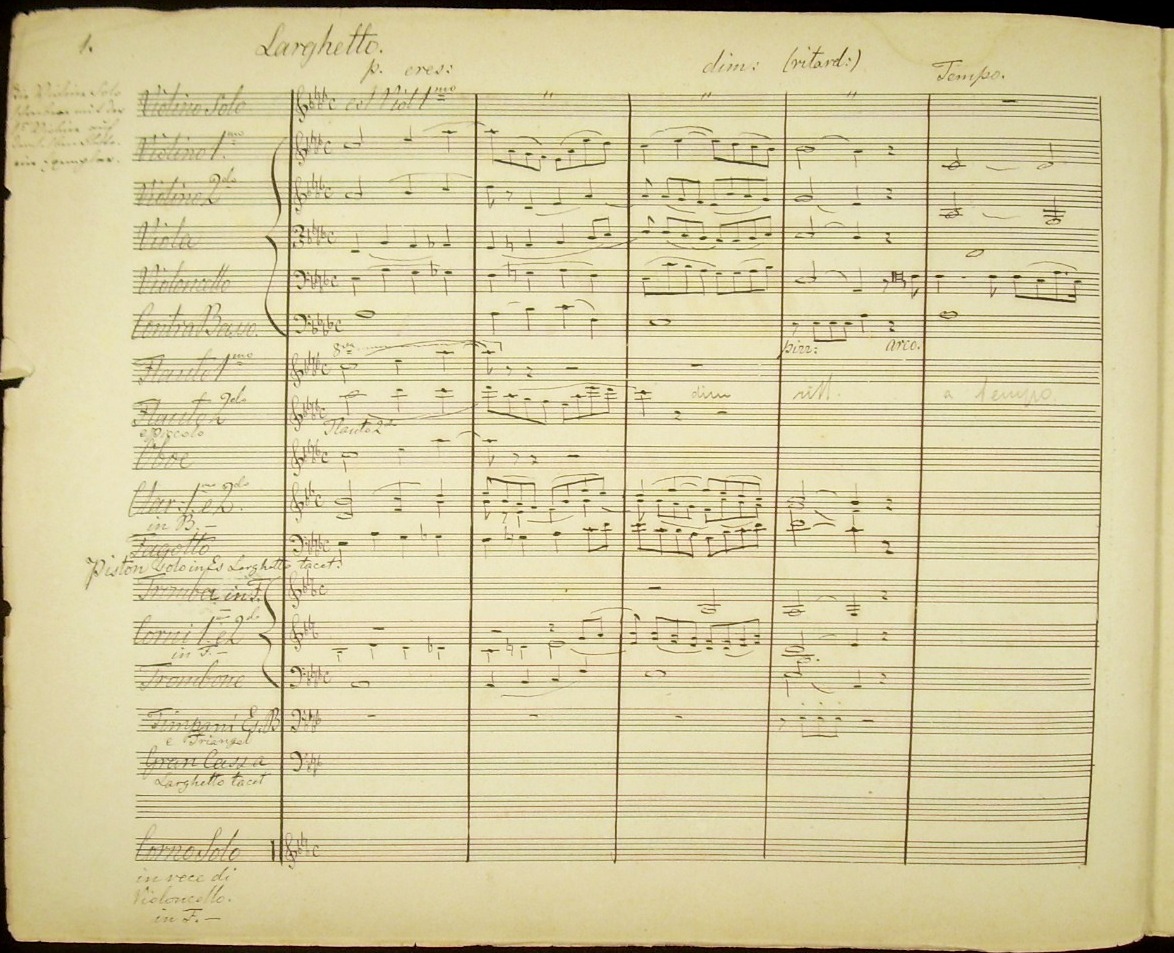 1.
Larghetto.
p. cres: dim: (ritard:) Tempo.
Violino Solo col Viol 1mo " " "
Violino 1mo
Violino 2do
Viola
Violoncello
Contra Basso.
pizz: arco.
Flauto 1mo 8va
Flauto 2do dim ritt. a tempo.
e Piccolo Flauto 2do
Oboe
Clar: 1mo e 2do.
in B. —
Fagotto
Piston Solo in Es Larghetto tacet:
Tromba in F.
Corni 1mo e 2do
in F. —
Trombone
Timpani Es. B
e Triangel
Gran Cassa
Larghetto tacet
Corno Solo
in vece di
Violoncello.
in F. —